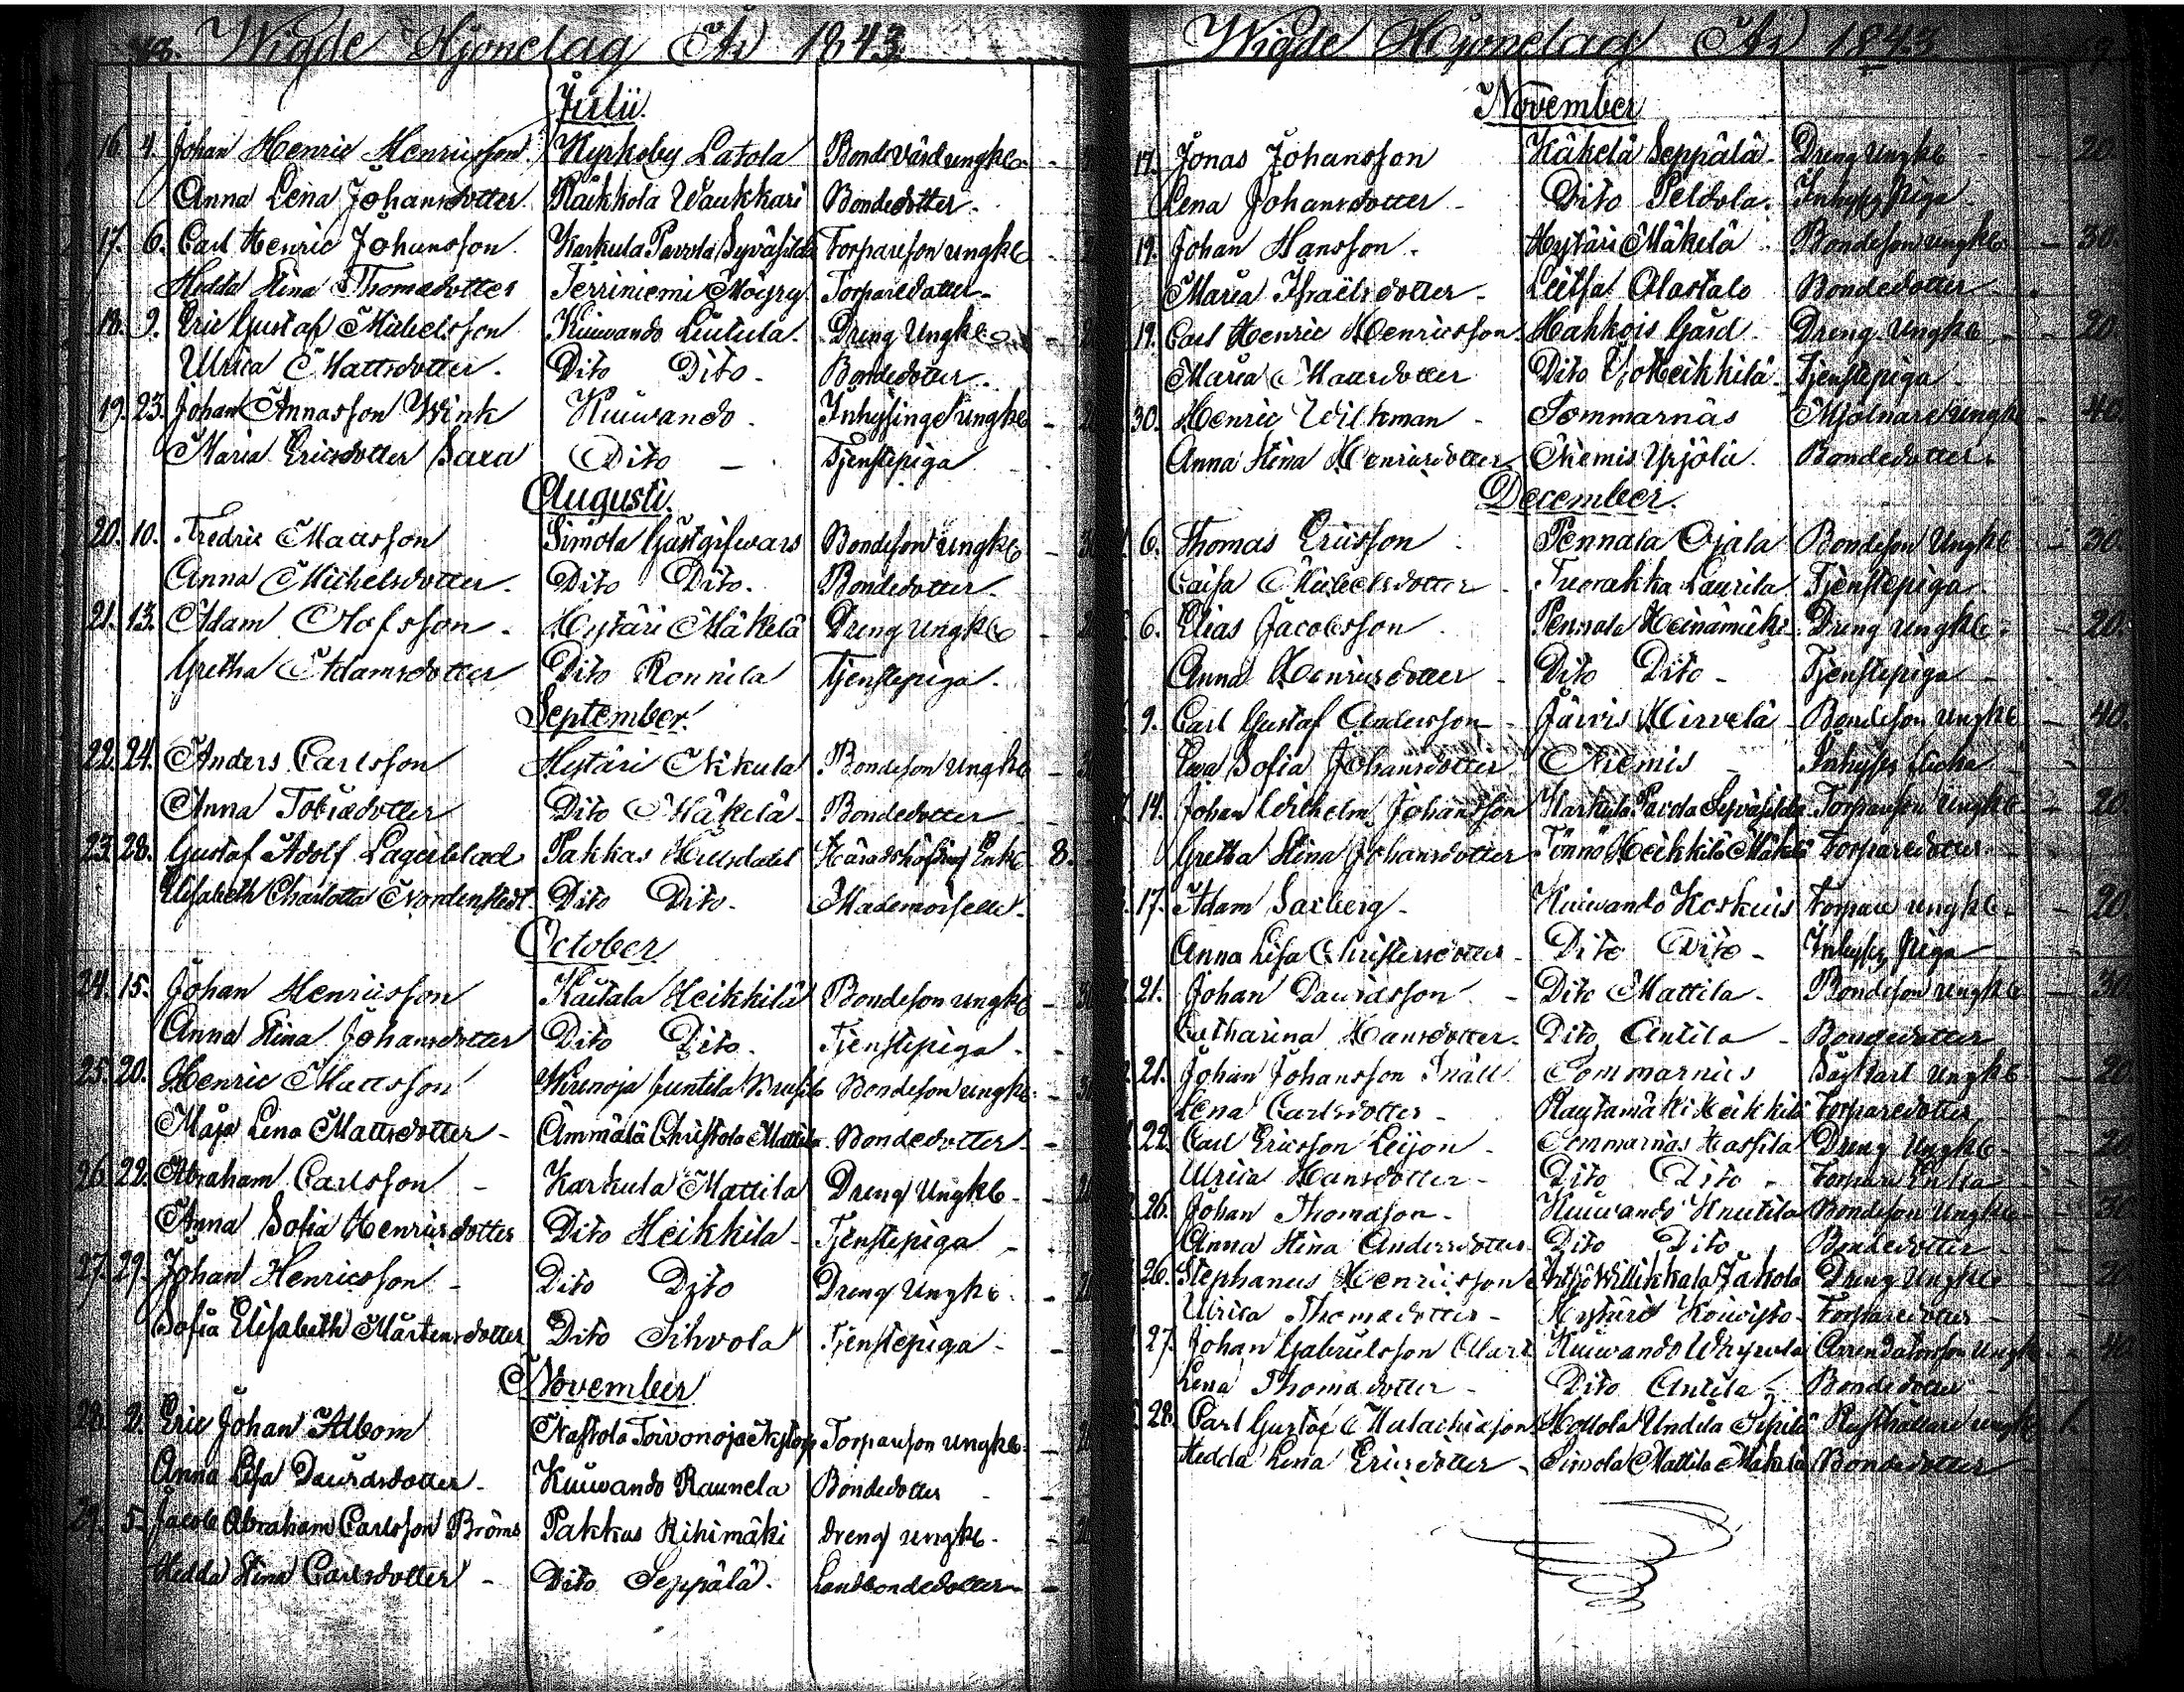 48. Wigde Hjonelag År 1843.
Julii.
16. 4. Johan Henric Henricsson. Kyrkoby Latola Bonde Värd ungkl.
Anna Lena Johansdotter Räikkola Waukkari Bondedotter.
17. 6. Carl Henric Johansson. Karkula Pavola Syväsilda Torpareson ungkl
Hedda Stina Thomedotter Terriniemi Möyry Torparedotter
18. 9. Eric Gustaf Michelsson Kuiwando Liutula. Dreng Ungkl
Ulrica Mattsdotter. Dito Dito. Bondedotter.
19. 23. Johan Annasson Wink Kuiwando. Inhysinge ungkl
Maria Ericsdotter Saxa Dito Tjenstepiga
Augusti.
20. 10. Fredric Mattsson Simola Gästgifwars Bondeson ungkl
Anna Michelsdotter. Dito Dito. Bondedotter.
21. 13. Adam Olofsson. Hytäri Mäkelä Dreng ungkl
Gretha Adamsdotter Dito Ronnila Tjenstepiga.
September.
22. 24. Anders Carlsson Hytäri Nikula Bondeson ungkl
Anna Tobiedotter Dito Mäkelä Bondedotter
23. 28. Gustaf Adolf Lagerblad Pakkas Häradshöfding Enkl 8.
Elisabeth Charlotta Nordenstedt Dito Dito. Mademoiselle.
October
24. 15. Johan Henricsson Kaitala Heikkilä Bondeson ungkl
Anna Stina Johansdotter Dito Dito. Tjenstepiga.
25. 20. Henric Mattsson Juntila Bondeson ungkl.
Maja Lena Mattsdotter Ämmälä Christola Mattila Bondedotter.
26. 22. Abraham Carlsson Karkula Mattila Dreng Ungkl
Anna Sofia Henricsdotter Dito Heikkila Tjenstepiga
27. 29. Johan Henricsson Dito Dito Dreng Ungkl.
Sofia Elisabeth Mårtensdotter Dito Sihvola Tjenstepiga
November
28. 2. Eric Johan Albom Nastola Toivonoja Torpareson ungkl.
Anna Lisa Davidsdotter. Kuiwando Raunela Bondedotter
29. 5. Jacob Abraham Carlsson Bröms Pakkas Rihimäki Dreng ungkl.
Hedda Stina Carlsdotter Dito Seppälä. Landbondedotter
Wigde Hjonelag År 1843
November
17. Jonas Johansson Käkelä Seppälä Dreng Ungkl
Lena Johansdotter Dito Peldola. Inhyses piga
19. Johan Hansson. Hytäri Mäkelä Bondeson ungkl. 30.
Maria Israelsdotter Leitsa Alastalo Bondedotter
19. Carl Henric Henricsson Hahkois Gård Dreng Ungkl 20.
Maria Mattsdotter Dito Heikkilä Tjenstepiga
30. Henric Wilkman Tommarnäs Mjölnare ungkl 40.
Anna Stina Henricsdotter Okiemis Yrjölä. Bondedotter.
December.
6. Thomas Ericsson Pennala Ojala Bondeson Ungkl 30.
Caisa Michelsdotter Tuorakka Laurila Tjenstepiga
6. Elias Jacobsson Pennala Heinämäki Dreng Ungkl. 20.
Anna Henricsdotter Dito Dito Tjenstepiga
9. Carl Gustaf Andersson Järvis Hirvelä Bondeson ungkl 40.
Eva Sofia Johansdotter Okiemis Inhyses flicka
14. Johan Wilhelm Johansson Karkula Pavola Syväsilda Torpareson Ungkl 20.
Gretha Stina Johansdotter Tönnö Heikkilä Mäkelä Torparedotter
17. Adam Saxberg Kuiwando Koskuis Torpare ungkl. 20.
Anna Lisa Christersdotter Dito Dito Inhyses piga
21. Johan Davidsson Dito Mattila. Bondeson ungkl 30.
Catharina Hansdotter. Dito Antila Bondedotter
21. Johan Johansson Snäll Tommarnäs ungkl 20
Lena Carlsdotter Heikkilä Torparedotter
22. Carl Ericsson Leijon Tommarnäs Hassila Dreng Ungkl 20
Ulrica Hansdotter Dito Dito Torpare Enka
26. Johan Thomasson. Kuiwando Knutila Bondeson Ungkl 30
Anna Stina Andersdotter Dito Dito Bondedotter
26. Stephanus Henricsson Dreng Ungkl 20
Ulrica Thomedotter Hytäri Koivisto Torparedotter
27. Johan Gabrielsson Kuiwando Arrendatorsson Ungkl 40
Lena Thomedotter Dito Antila Bondedotter
28. Carl Gustaf Malachiasson Hollola Undila Rusthållare ungkl 1.
Hedda Lena Ericsdotter Simola Mattila Mäkelä Bondedotter